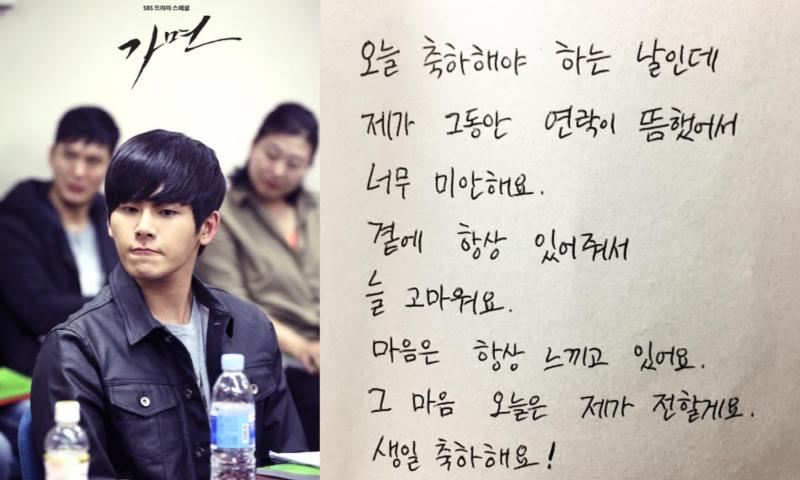 SBS 드라마 스페셜
가면
오늘 축하해야 하는 날인데
제가 그동안 연락이 뜸했어서
너무 미안해요.
곁에 항상 있어줘서
늘 고마워요.
마음은 항상 느끼고 있어요.
그 마음 오늘은 제가 전할게요.
생일 축하해요!